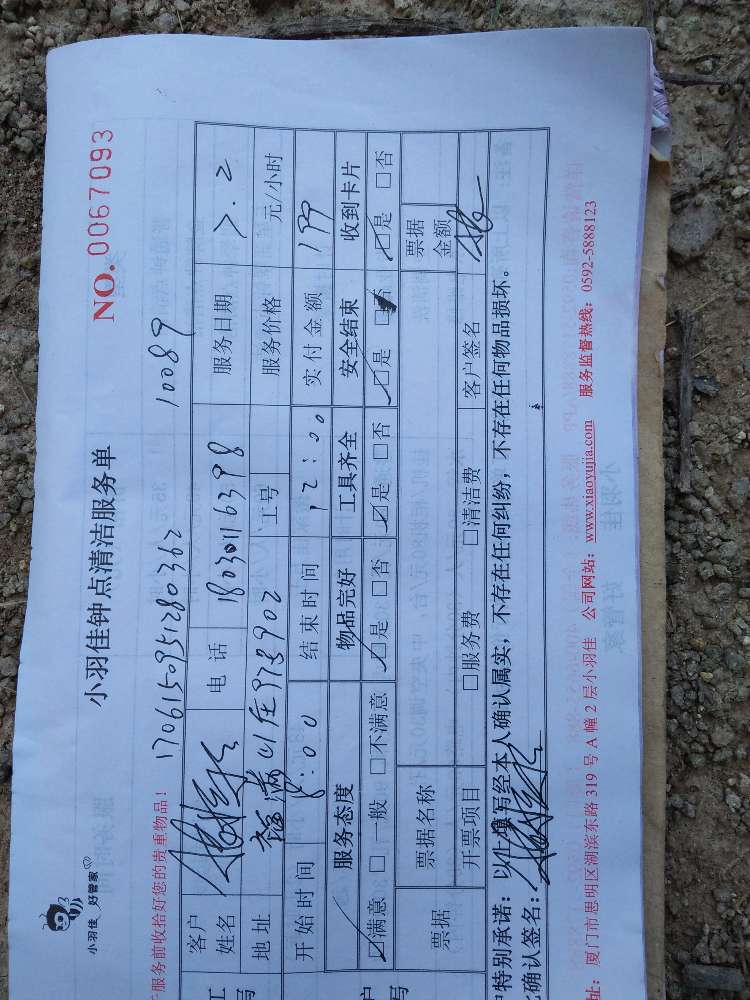 小羽佳 好管家
小羽佳钟点清洁服务单
NO.0067093
服务前收拾好您的贵重物品!
1706150951280362
10089
客户姓名
电话 18030116398
服务日期 7.2
地址
工号
服务价格 元/小时
开始时间 8:00
结束时间 12:00
实付金额 199
服务态度 物品完好 工具齐全 安全结束 收到卡片
☑满意 □一般 □不满意 ☑是 □否 ☑是 □否 ☑是 □否 ☑是 □否
票据 票据名称 票据金额
开票项目 □服务费 □清洁费 客户签名
特别承诺:以上填写经本人确认属实,不存在任何纠纷,不存在任何物品损坏。
确认签名:
址:厦门市思明区湖滨东路 319 号 A 幢 2 层小羽佳 公司网站:www.xiaoyujia.com 服务监督热线:0592-5888123